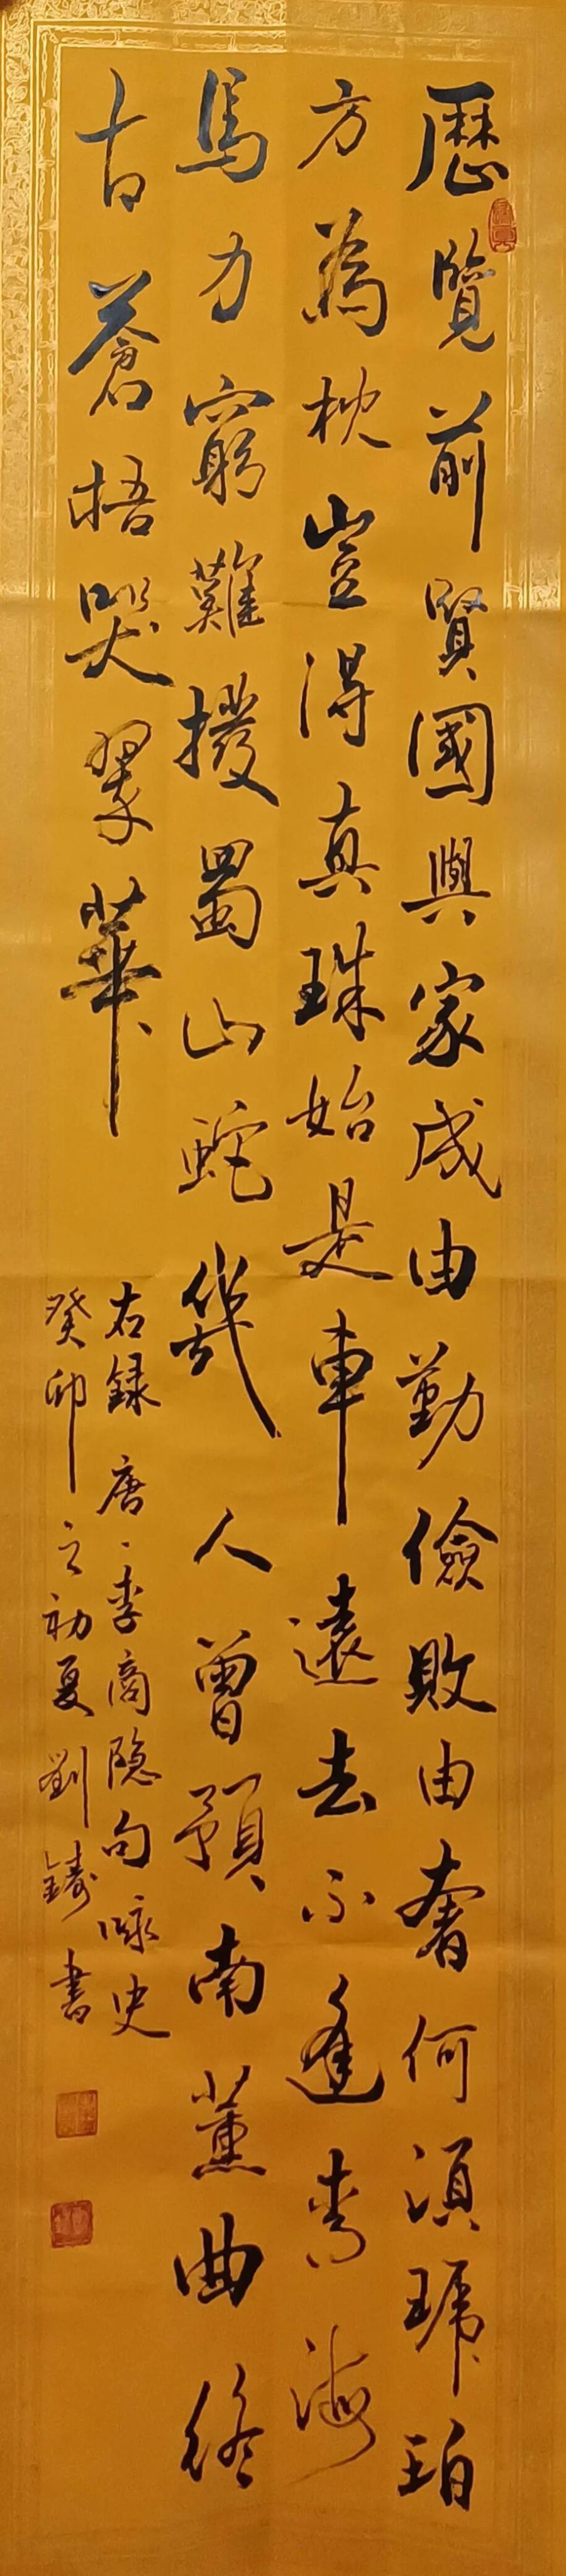 歷覽前賢國與家成由勤儉敗由奢何須琥珀
方為枕豈得真珠始是車遠去不逢青海
馬力窮難撥蜀山蛇幾人曾預南薰曲終
古蒼梧哭翠華
右録唐、李商隐句咏史
癸卯之初夏劉鑄書